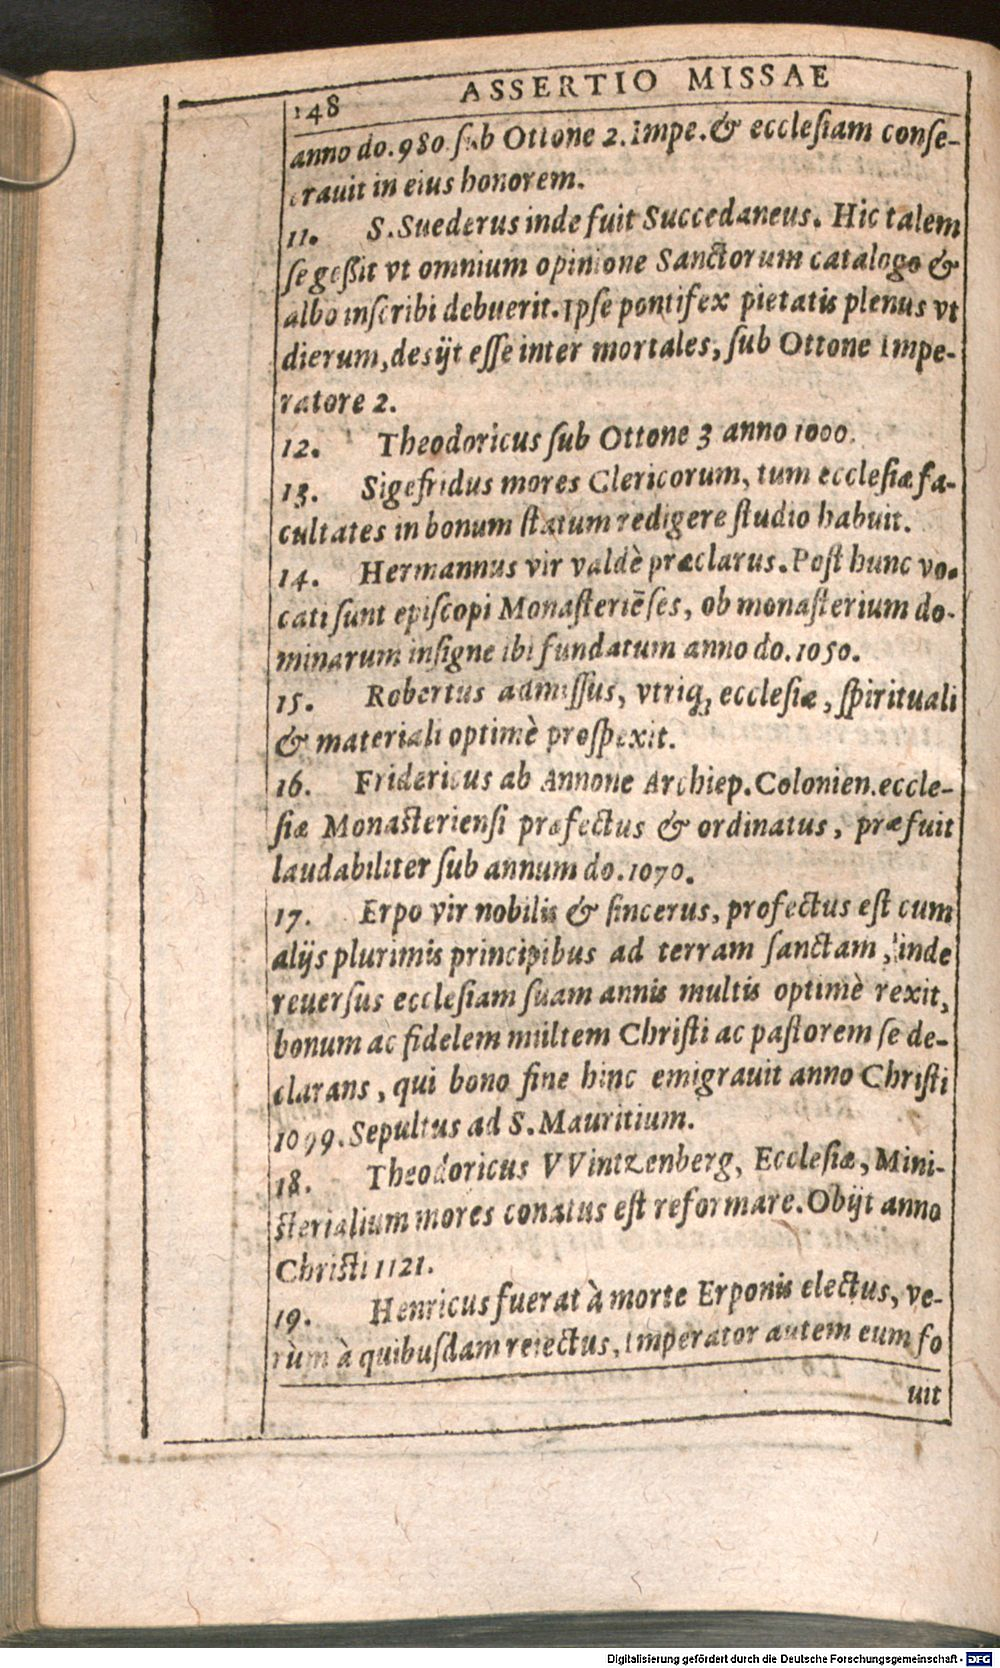 148 ASSERTIO MISSAE
anno do. 980. sub Ottone 2. Impe. & ecclesiam conse-
crauit in eius honorem.
11. S. Suederus inde fuit Succedaneus. Hic talem
se geßit vt omnium opinione Sanctorum catalogo &
albo inscribi debuerit. Ipse pontifex pietatis plenus vt
dierum, desijt esse inter mortales, sub Ottone Impe-
ratore 2.
12. Theodoricus sub Ottone 3 anno 1000.
13. Sigefridus mores Clericorum, tum ecclesiæ fa-
cultates in bonum statum redigere studio habuit.
14. Hermannus vir valdè præclarus. Post hunc vo-
cati sunt episcopi Monasteriēses, ob monasterium do-
minarum insigne ibi fundatum anno do. 1050.
15. Robertus admissus, vtriq; ecclesiæ, spirituali
& materiali optimè prospexit.
16. Fridericus ab Annone Archiep. Colonien. eccle-
siæ Monasteriensi præfectus & ordinatus, præfuit
laudabiliter sub annum do. 1070.
17. Erpo vir nobilis & sincerus, profectus est cum
alijs plurimis principibus ad terram sanctam, inde
reuersus ecclesiam suam annis multis optimè rexit,
bonum ac fidelem militem Christi ac pastorem se de-
clarans, qui bono fine hinc emigrauit anno Christi
1099. Sepultus ad S. Mauritium.
18. Theodoricus VVintzenberg, Ecclesiæ, Mini-
sterialium mores conatus est reformare. Obijt anno
Christi 1121.
19. Henricus fuerat à morte Erponis electus, ve-
rùm à quibusdam reiectus, Imperator autem eum fo
uit
Digitalisierung gefördert durch die Deutsche Forschungsgemeinschaft - DFG